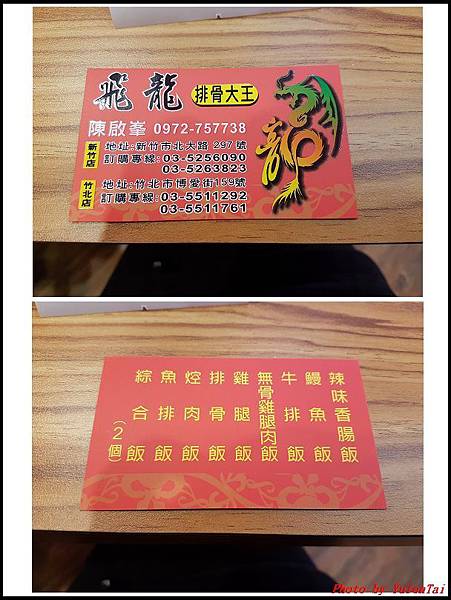 飛龍 排骨大王
陳啟峯 0972-757738
新竹店
地址:新竹市北大路 297號
訂購專線:03-5256090
03-5263823
竹北店
地址:竹北市博愛街159號
訂購專線:03-5511292
03-5511761
龍
辣味香腸飯
鰻魚飯
牛排飯
無骨雞腿肉飯
雞腿飯
排骨飯
焢肉飯
魚排飯
綜合飯
(2個)
Photo by YulonTai